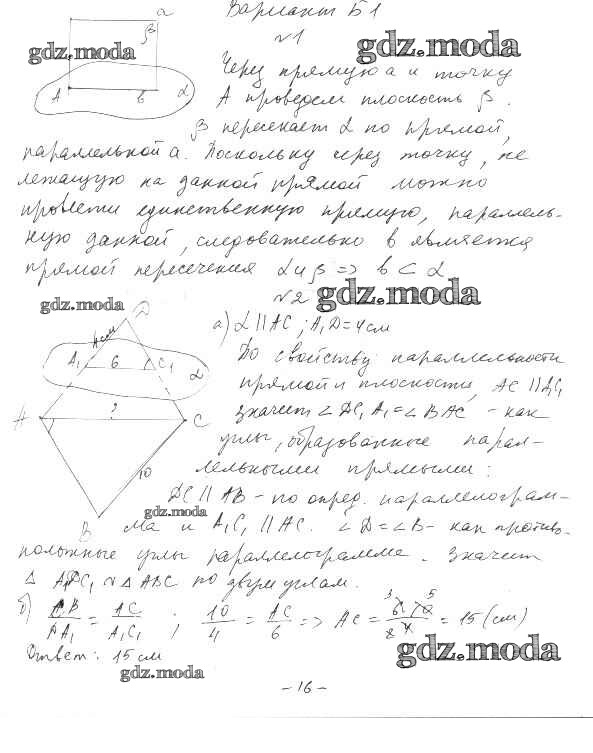 Вариант Б1
a
№1
gdz.moda
gdz.moda
β
Через прямую a и точку
A
b
α
A проведем плоскость β.
β пересекает α по прямой,
параллельной a. Поскольку через точку, не
лежащую на данной прямой можно
провести единственную прямую, параллель-
ную данной, следовательно b является
прямой пересечения α и β => b ⊂ α
gdz.moda
№2
gdz.moda
D
а) α || AC ; A₁D = 4 см
4 см
A₁
6
C₁
α
По свойству параллельности
прямой и плоскости, AC || A₁C₁
A
?
C
значит ∠DC₁A₁ = ∠BAC - как
углы, образованные парал-
лельными прямыми:
10
DC || AB - по опред. параллелограм-
gdz.moda
B
ма и A₁C₁ || AC. ∠D = ∠B - как противо-
положные углы параллелограмма. Значит
Δ A₁DC₁ ∾ Δ ABC по двум углам.
б) CB/AA₁ = AC/A₁C₁ ; 10/4 = AC/6 => AC = 6·10/4 = 15 (см)
3
5
2
Ответ: 15 см
gdz.moda
gdz.moda
- 16 -